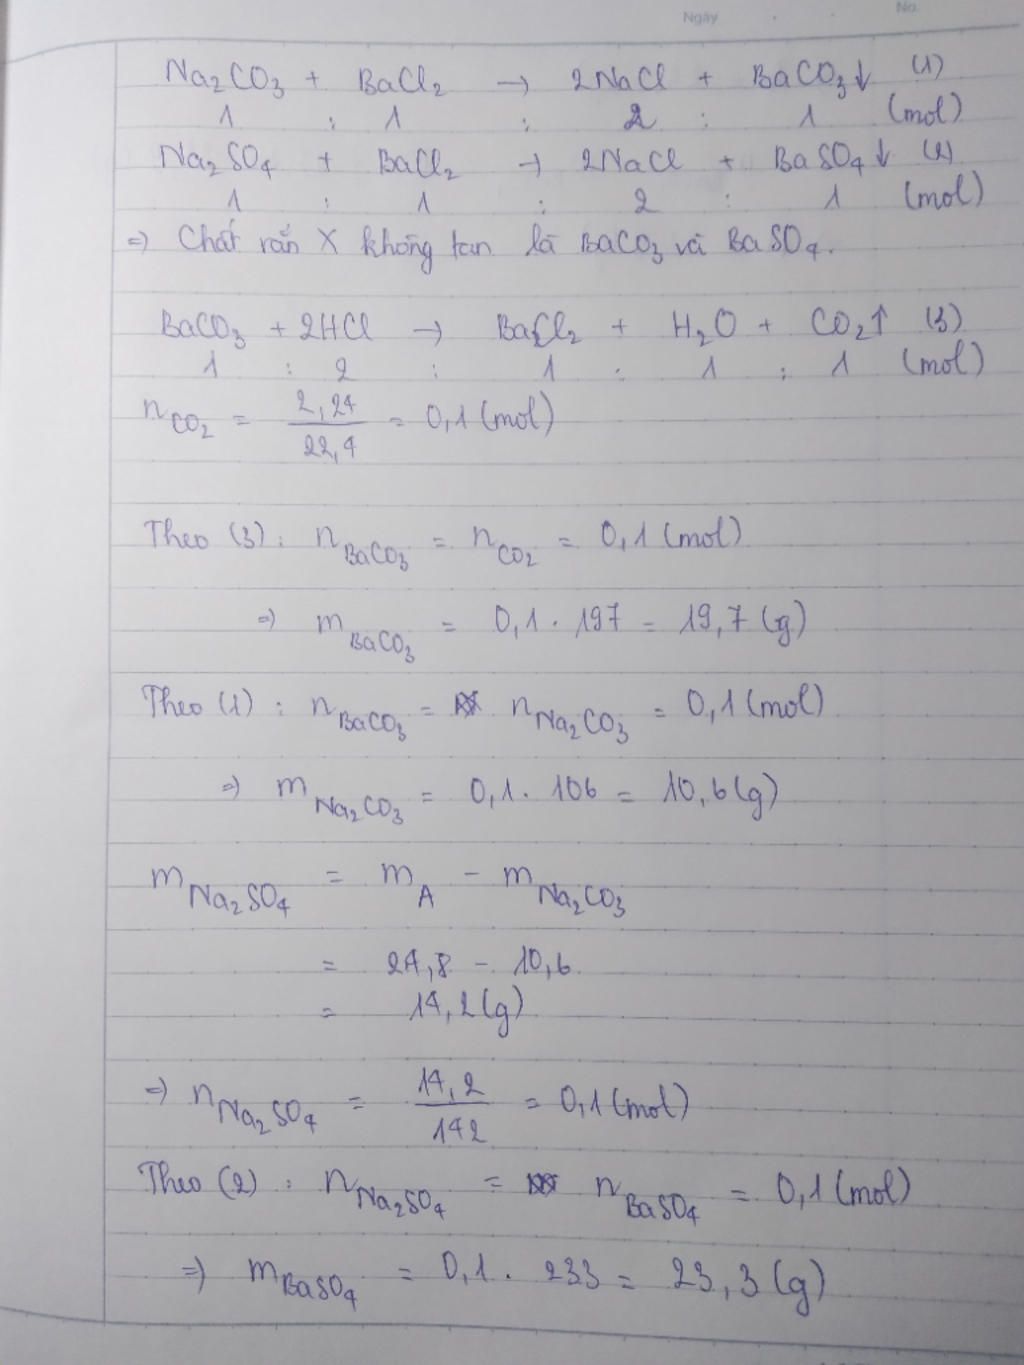 Ngày No.
Na₂CO₃ + BaCl₂ → 2NaCl + BaCO₃↓ (1)
1 : 1 : 2 : 1 (mol)
Na₂SO₄ + BaCl₂ → 2NaCl + BaSO₄↓ (2)
1 : 1 : 2 : 1 (mol)
⇒ Chất rắn X không tan là BaCO₃ và BaSO₄.
BaCO₃ + 2HCl → BaCl₂ + H₂O + CO₂↑ (3)
1 : 2 : 1 : 1 : 1 (mol)
n_CO₂ = 2,24/22,4 = 0,1 (mol)
Theo (3): n_BaCO₃ = n_CO₂ = 0,1 (mol)
⇒ m_BaCO₃ = 0,1 . 197 = 19,7 (g)
Theo (1) : n_BaCO₃ = n_Na₂CO₃ = 0,1 (mol)
⇒ m_Na₂CO₃ = 0,1 . 106 = 10,6 (g)
m_Na₂SO₄ = m_A - m_Na₂CO₃
= 24,8 - 10,6
= 14,2 (g)
⇒ n_Na₂SO₄ = 14,2/142 = 0,1 (mol)
Theo (2) : n_Na₂SO₄ = n_BaSO₄ = 0,1 (mol)
⇒ m_BaSO₄ = 0,1 . 233 = 23,3 (g)